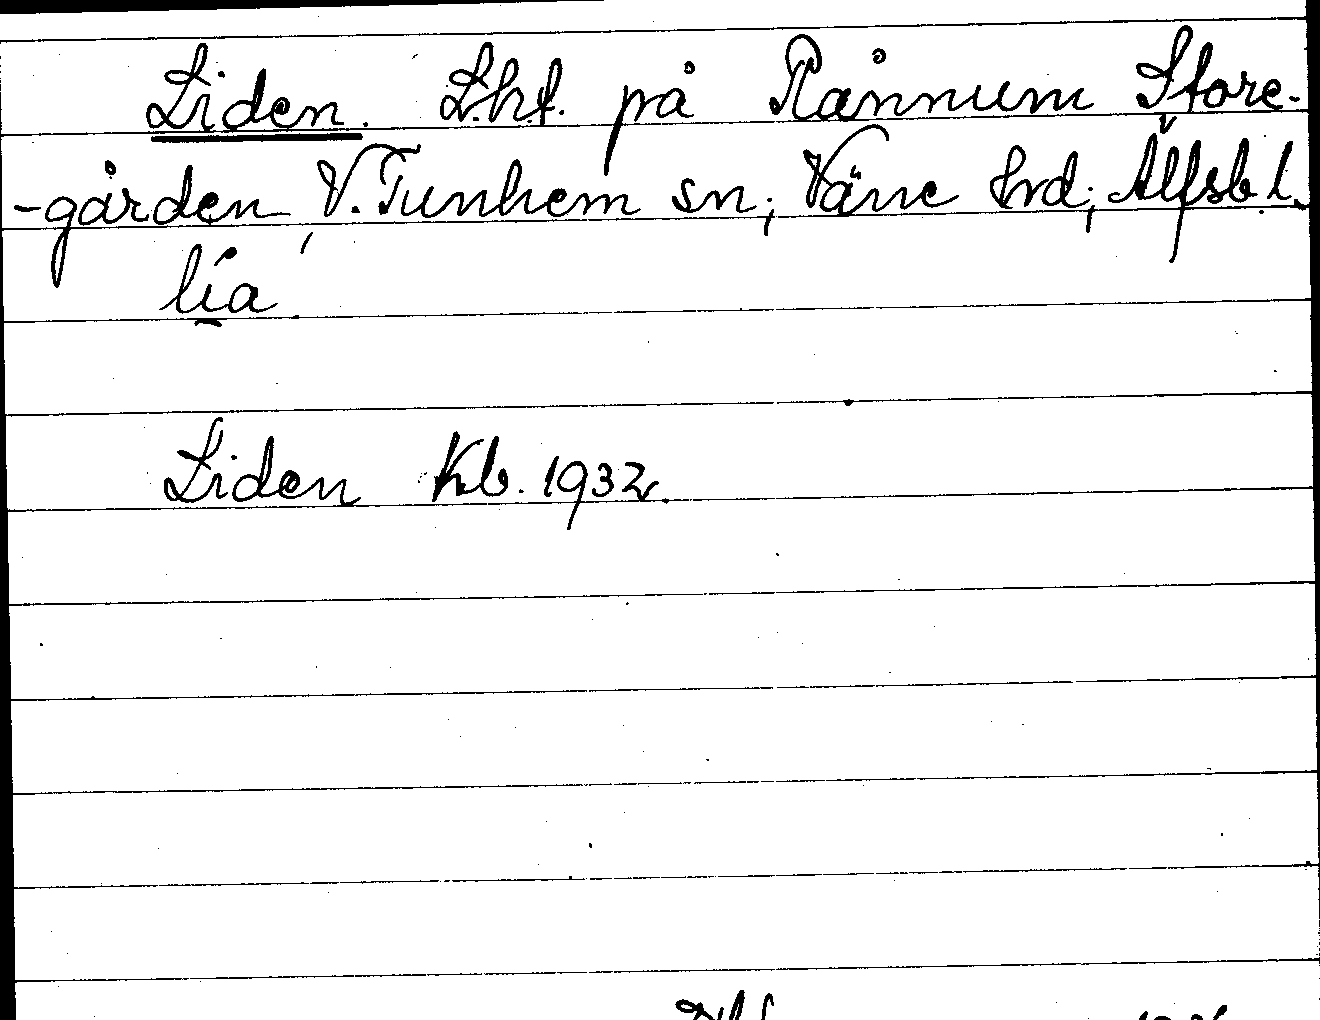 Liden. L.ht. på Rånnum Store-
-gården, V. Tunhem sn; Väne hrd; Älfsb. l.
lía.
Liden Kb. 1932.